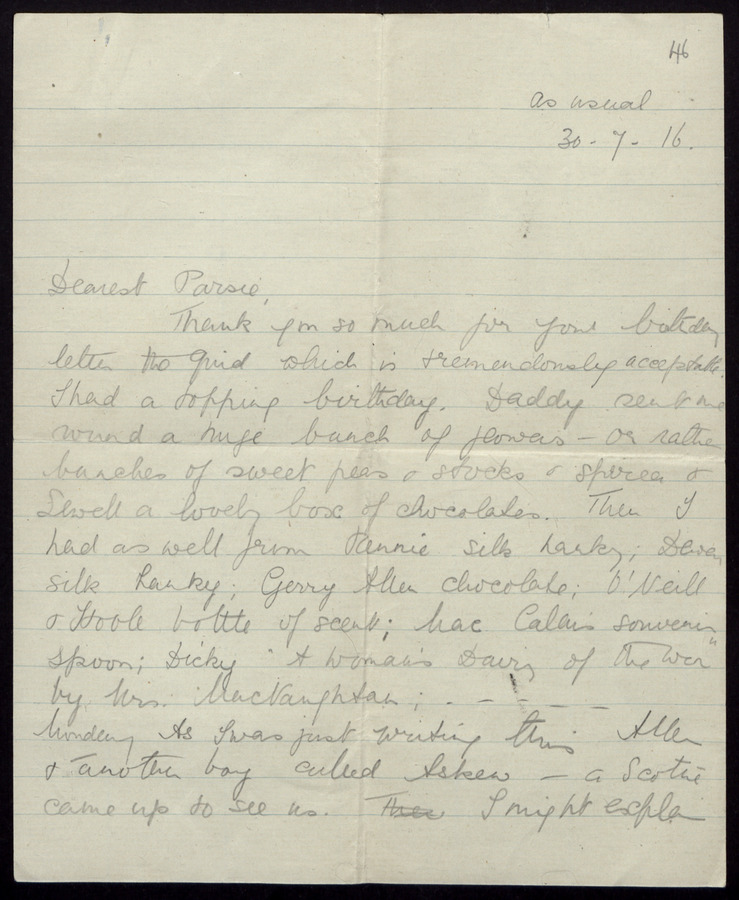 46
as usual
30 - 7 - 16.
Dearest Parsie,
Thank you so much for your birthday
letter the quid which is tremendously acceptable.
I had a topping birthday. Daddy sent me
round a huge bunch of flowers - or rather
bunches of sweet peas & stocks & spirea &
Sewell a lovely box of chocolates. Then I
had as well from Pennie silk hanky; 
silk hanky; Gerry Allen chocolate; O'Neill
& Hoole bottle of scent; Mac Calais souvenir
spoon; Dicky "A Woman's Dairy of the War"
by Mrs. MacNaughtan; . - - - -
Monday As I was just writing this Allen
& another boy called Askew - a Scottie
came up to see us. I might explain